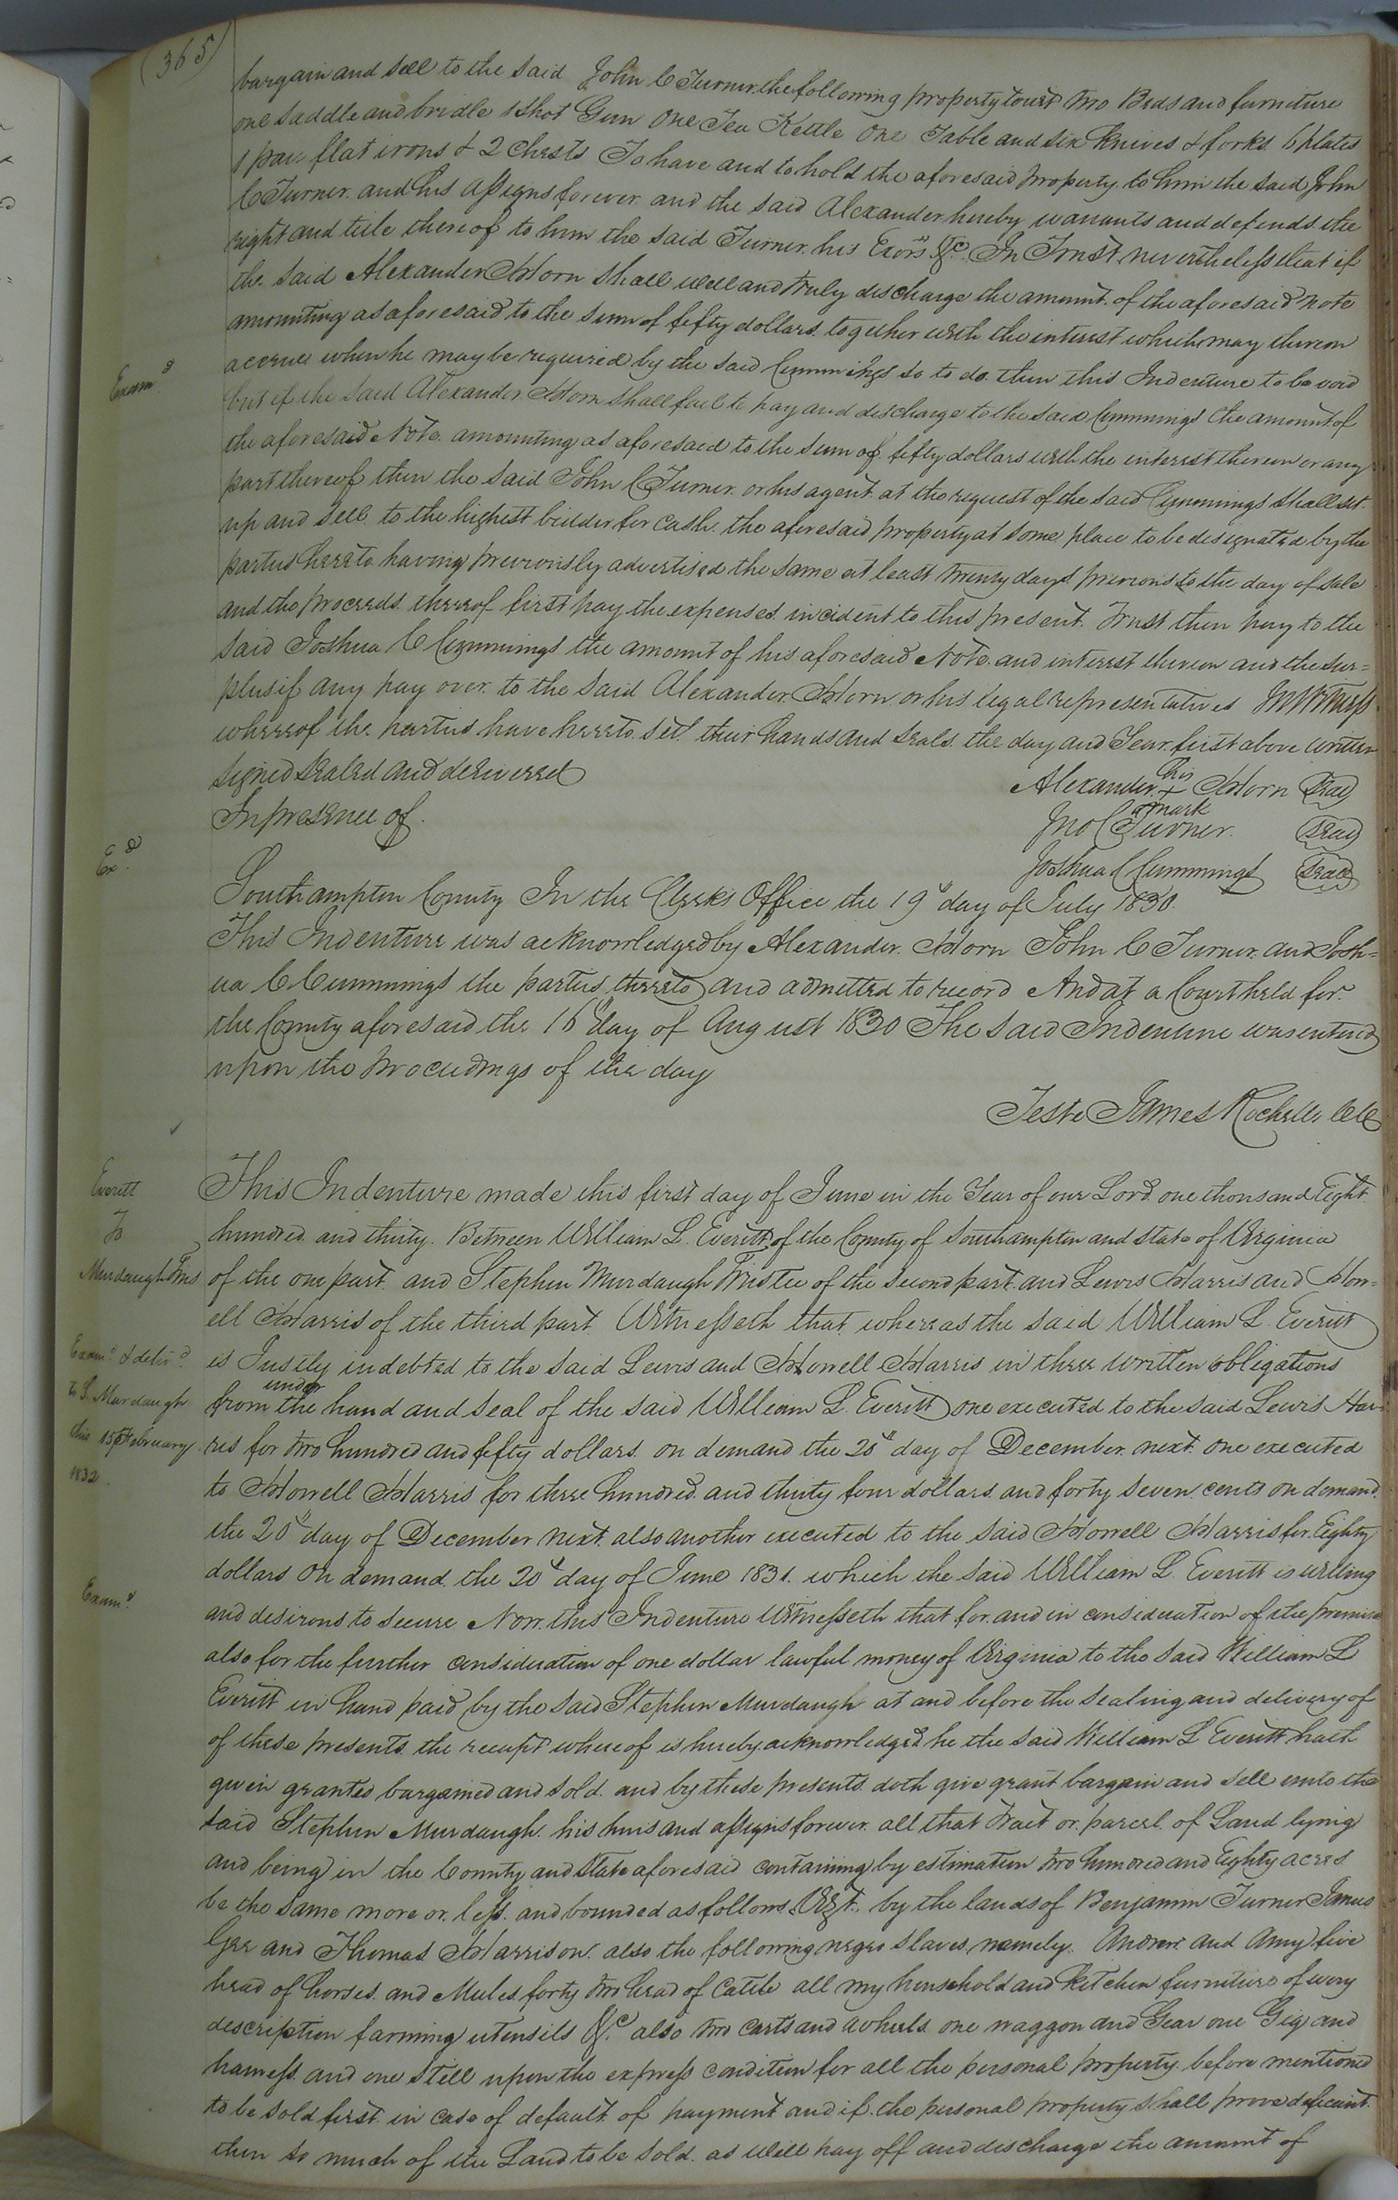 (365)
bargain and sell to the said John C Turner the following property towit two Beds and furniture
one saddle and bridle 1 Shot Gun One Tea Kettle One Table and six knives & forks 6 plates
1 pair flat irons & 2 Chests To have and to hold the aforesaid property to him the said John
C Turner and his assigns forever and the said Alexander hereby warrants and defends the
right and title thereof to him the said Turner his Exors &c. In Trust nevertheless that if
the said Alexander Horn shall well and truly discharge the amount of the aforesaid note
amounting as aforesaid to the sum of fifty dollars together with the interest which may thereon
Examd
accrue when he may be required by the said Cummings so to do then this Indenture to be void
but if the said Alexander Horn shall fail to pay and discharge to the said Cummings the amount of
the aforesaid Note amounting as aforesaid to the sum of fifty dollars with the interest thereon or any
part thereof then the said John C Turner or his agent at the request of the said Cummings shall set
up and sell to the highest bidder for cash the aforesaid property at some place to be designated by the
parties hereto having previously advertised the same at least twenty days previous to the day of sale
and the proceeds thereof first pay the expenses incident to this present Trust then pay to the
said Joshua C Cummings the amount of his aforesaid Note and interest thereon and the sur=
plus if any pay over to the said Alexander Horn or his legal representatives In Witness
whereof the parties have hereto set their hands and seals the day and Year first above written
Signed Sealed and delivered
In presence of
Alexander his + mark Horn Seal
Jno C Turner Seal
Joshua C Cummings Seal
Exd
Southampton County In the Clerks Office the 19th day of July 1830.
This Indenture was acknowledged by Alexander Horn John C Turner and Josh=
ua C Cummings the parties thereto and admitted to record And at a Court held for
the County aforesaid the 16th day of August 1830 The said Indenture was entered
upon the proceedings of the day
Teste James Rochelle CC
Everett
To
Murdaugh Trus
This Indenture made this first day of June in the Year of our Lord one thousand Eight
hundred and thirty Between William L. Everitt of the County of Southampton and State of Virginia
of the one part and Stephen Murdaugh Trustee of the second part and Lewis Harris and How=
ell Harris of the third part Witnesseth that whereas the said William L. Everitt
Examd & delivd
to S. Murdaugh
this 15th February
1832.
is Justly indebted to the said Lewis and Howell Harris in three written obligations
from under the hand and seal of the said William L. Everitt one executed to the said Lewis Har=
ris for two hundred and fifty dollars on demand the 20th day of December next one executed
to Howell Harris for three hundred and thirty four dollars and forty seven cents on demand
the 20th day of December next also another executed to the said Howell Harris for Eighty
dollars on demand the 20th day of June 1831 which the said William L Everitt is willing
Examd
and desirous to secure Now this Indenture Witnesseth that for and in consideration of the premises
also for the further consideration of one dollar lawful money of Virginia to the said William L
Everitt in hand paid by the said Stephen Murdaugh at and before the sealing and delivery of
of these presents the receipt whereof is hereby acknowledged he the said William L Everitt hath
given granted bargained and sold and by these presents doth give grant bargain and sell unto the
said Stephen Murdaugh his heirs and assigns forever all that tract or parcel of Land lying
and being in the County and State aforesaid containing by estimation two hundred and Eighty acres
be the same more or less and bounded as follows Vizt. by the lands of Benjamin Turner James
Gee and Thomas Harrison also the following negro slaves namely Andrew and Amy five
head of horses and Mules forty two head of Cattle all my household and Kitchen furniture of every
description farming utensils &c also two carts and wheels one waggon and Gear one Gig and
harness and one Still upon the express condition for all the personal property before mentioned
to be sold first in case of default of payment and if the personal property shall prove deficient
then so much of the Land to be sold as will pay off and discharge the amount of